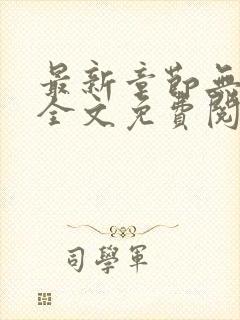 最新章節無
全文免費閱
司學軍